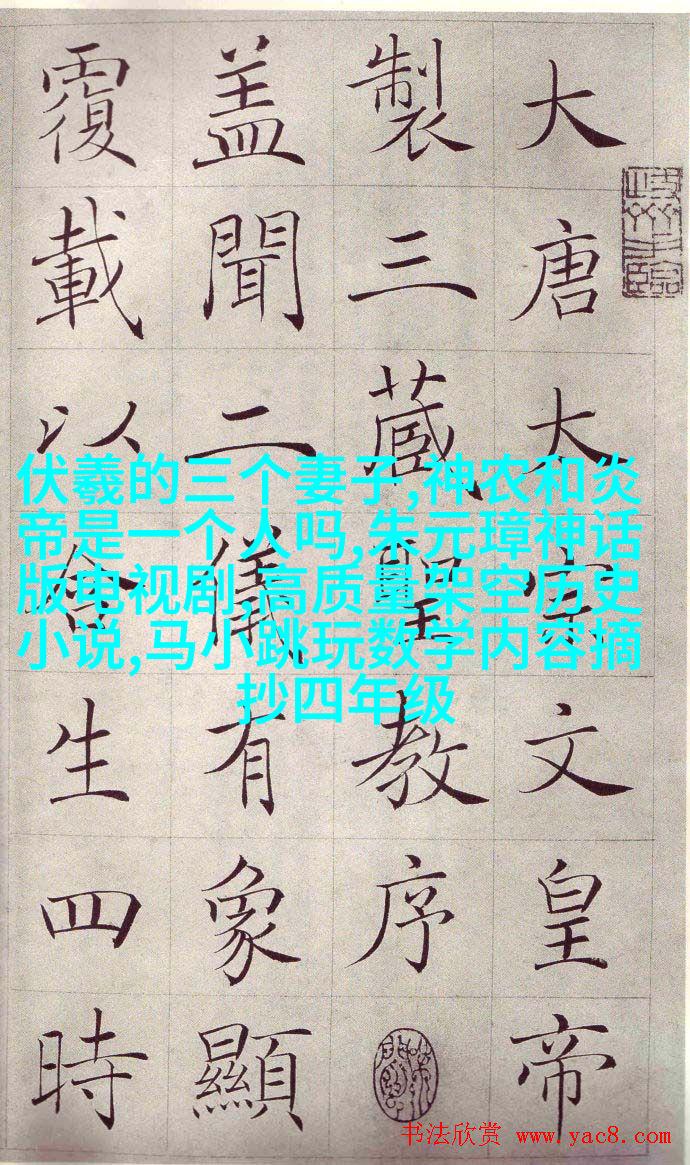 大唐太宗文皇帝
製三藏聖教序
盖聞二儀有象顯
覆載以含生四時
伏羲的三个妻子,神农和炎
帝是一个人吗,朱元璋神话
版电视剧,高质量架空历史
小说,马小跳玩数学内容摘
抄四年级
书法欣赏 www.yac8.com